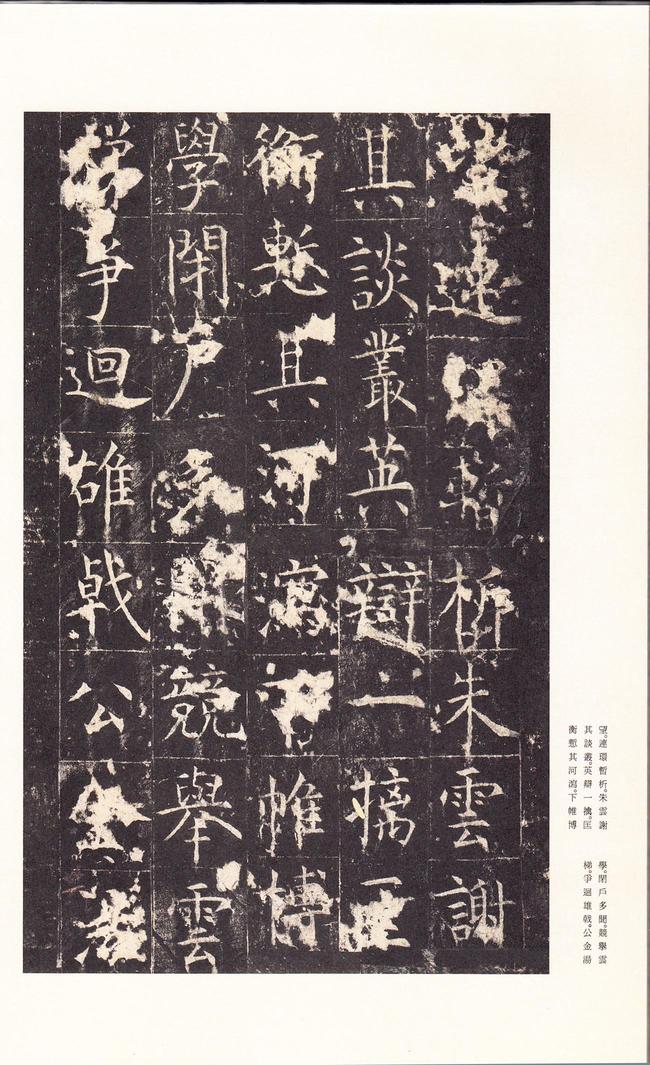 望連環暫析朱雲謝
其談叢英辯一摛匡
衡慙其河瀉下帷博
學閉戶多聞競舉雲
梯爭迴雄戟公金湯
望。連環暫析。朱雲謝
其談叢。英辯一摛。匡
衡慙其河瀉。下帷博
學。閉戶多聞。競舉雲
梯。爭迴雄戟。公金湯